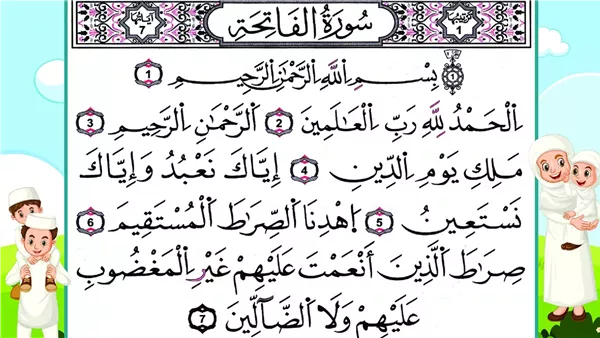 ترتيبها 1 سُورَةُ الْفَاتِحَةِ آياتها 7
بِسْمِ اِ۬للَّهِ اِ۬لرَّحْمَٰنِ اِ۬لرَّحِيمِ 1
اِ۬لْحَمْدُ لِلَّهِ رَبِّ اِ۬لْعَٰلَمِينَ 2 اَ۬لرَّحْمَٰنِ اِ۬لرَّحِيمِ 3
مَلِكِ يَوْمِ اِ۬لدِّينِ 4 إِيَّاكَ نَعْبُدُ وَإِيَّاكَ
نَسْتَعِينُ 5 اَ۪هْدِنَا اَ۬لصِّرَٰطَ اَ۬لْمُسْتَقِيمَ 6
صِرَٰطَ اَ۬لَّذِينَ أَنْعَمْتَ عَلَيْهِمْ غَيْرِ اِ۬لْمَغْضُوبِ
عَلَيْهِمْ وَلَا اَ۬لضَّآلِّينَ 7